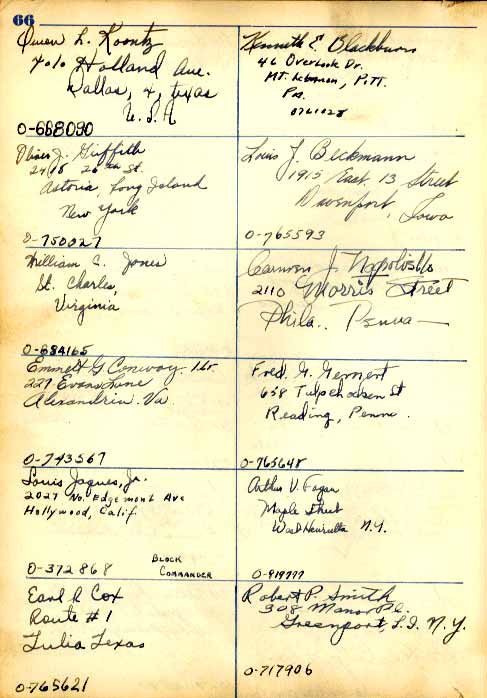 66
Owen L. Koontz
4010 Holland Ave.
Dallas, 4, Texas
U.S.A
O-688090
Kenneth E. Blackburn
46 Overlook Dr.
MT. Lebanon, PITT.
PA.
0761028
Oliver J. Griffith
24 15 26th St.
Astoria, Long Island
New York
O-750027
Louis J. Beckmann
1915 East, 13 Street
Davenport, Iowa
O-765593
William C. Jones
St. Charles,
Virginia
O-684165
Carmen J. Napolitello
2110 Morris Street
Phila., Penna
Emmett G. Conway
227 Evans Lane
Alexandria Va
O-743567
Fred. G. Gernert
658 Tulpehocken St
Reading, Penna.
O-765648
Louis Jaques, Jr.
2027 No. Edgemont Ave
Hollywood, Calif.
O-372868
BLOCK
COMMANDER
Arthur V. Fagan
Maple Street
West Henrietta N.Y.
O-919777
Earl R Cox
Route #1
Tulia Texas
O-765621
Robert P. Smith
308 Manor Pl.
Greenport, L.I. N.Y.
O-717906